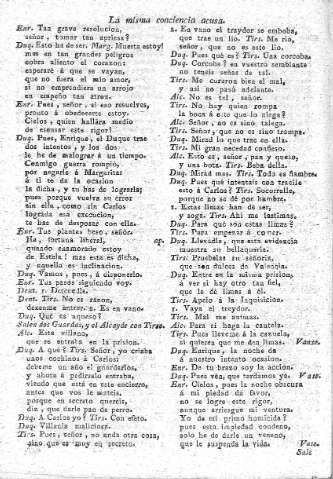 La misma conciencia acusa.
Enr. Tan grave resolucion,
señor, tomar tan apriesa?
Duq. Esto ha de ser. Marg. Muerta estoy!
Duq. mas en tan grandes peligros
sobra aliento el corazon:
esperaré á que se vayan,
que no fuera el mio amor,
si no emprendiera un arrojo
en empeño tan atroz.
Enr. Pues, señor, si eso resuelves,
pronto á obedecerte estoy.
Cielos, quien hallára medio
de excusar este rigor!
Duq. Pues, Enrique, el Duque trae
dos intentos, y los dos
le he de malograr á un tiempo.
Conmigo guerra rompió,
por negarle á Margarita:
á tí te da la ocasion
la dicha, y tu has de lograrla;
pues porque vuelva su error
sin ella, como sin Carlos
lograda esa execucion,
te has de desposar con ella.
Enr. Tus plantas beso, señor.
Ha, fortuna liberal, ap.
quando enamorado estoy
de Estela! mas esta es dicha,
y aquella es inclinacion.
Duq. Vamos, pues, á disponerlo.
Enr. Tus pasos siguiendo voy.
Dent. 1. Detenedle.
Dent. Tirs. No es razon,
dexenme entrar. 2. Es en vano.
Duq. Qué es aqueso?
Salen dos Guardas, y el Alcayde con Tirso.
Alc. Este villano,
que se entraba en la prision.
Duq. A qué? Tirs. Señor, yo criaba
unos cochinos á Carlos:
debeme un año el guardarlos,
y ahora á pedirselo entraba,
viendo que está en este encierro,
antes que vos le mateis,
porque en secreto quereis,
dix, que darle pan de perro.
Duq. A Carlos yo? Tirs. Con efeto.
Duq. Villania malicioso.
Tirs. Pues, señor, no anda otra cosa,
sino que es muy en secreto.
2. En vano el traydor se emboba,
que trae un lio. Tirs. Me ria,
señor, que no es este lio.
Duq. Pues qué es? Tirs. Una corcoba.
Duq. Corcoba? en vuestro semblante
no teneis señas de tal.
Tirs. Me curaron bien el mal,
y así no pasó adelante.
Alc. No es tal, señor.
Tirs. No hay quien rompa
la boca á este que lo niega?
Alc. Señor, no es sino talega.
Tirs. Señor, que no es sino trompa.
Duq. Mirad lo que trae en ella.
Tirs. Mi grana necedad confieso.
Alc. Esto es, señor, pan y queso,
y una bota. Tirs. Beba della.
Duq. Mirad mas. Tirs. Todo es fiambre.
Duq. Pues qué intentais con traerle
esto á Carlos? Tirs. Socorrerle,
porque no se dé por hambre.
2. Estas limas han de ser,
y soga. Tirs. Ahí me lastimas.
Duq. Para qué son estas limas?
Tirs. Para empezar á comer.
Duq. Llevadle, que esta evidencia
muestra su bellaquería.
Tirs. Pruebelas su señoría,
que son dulces de Valencia.
Duq. Entre en la misma prision,
á ver si hay otro tan fiel,
que la dé limas á él.
Tirs. Apelo á la Inquisicion.
1. Vaya el traydor.
Tirs. Mal me animas.
Alc. Pues él haga la cautela.
Tirs. Pues lleveme á la cazuela,
si quieres que me den limas. Vanse.
Duq. Enrique, la noche da
á nuestro intento ocasion.
Enr. De tu brazo soy la accion.
Duq. Pues vén, que tardamos ya. Vase.
Enr. Cielos, pues la noche obscura
á mi piedad da favor,
no se logre este rigor,
aunque arriesgue mi ventura.
Yo de mi primo homicida?
pues esta impiedad condeno,
solo he de darle un veneno,
que le suspenda la vida. Vase.
Sale